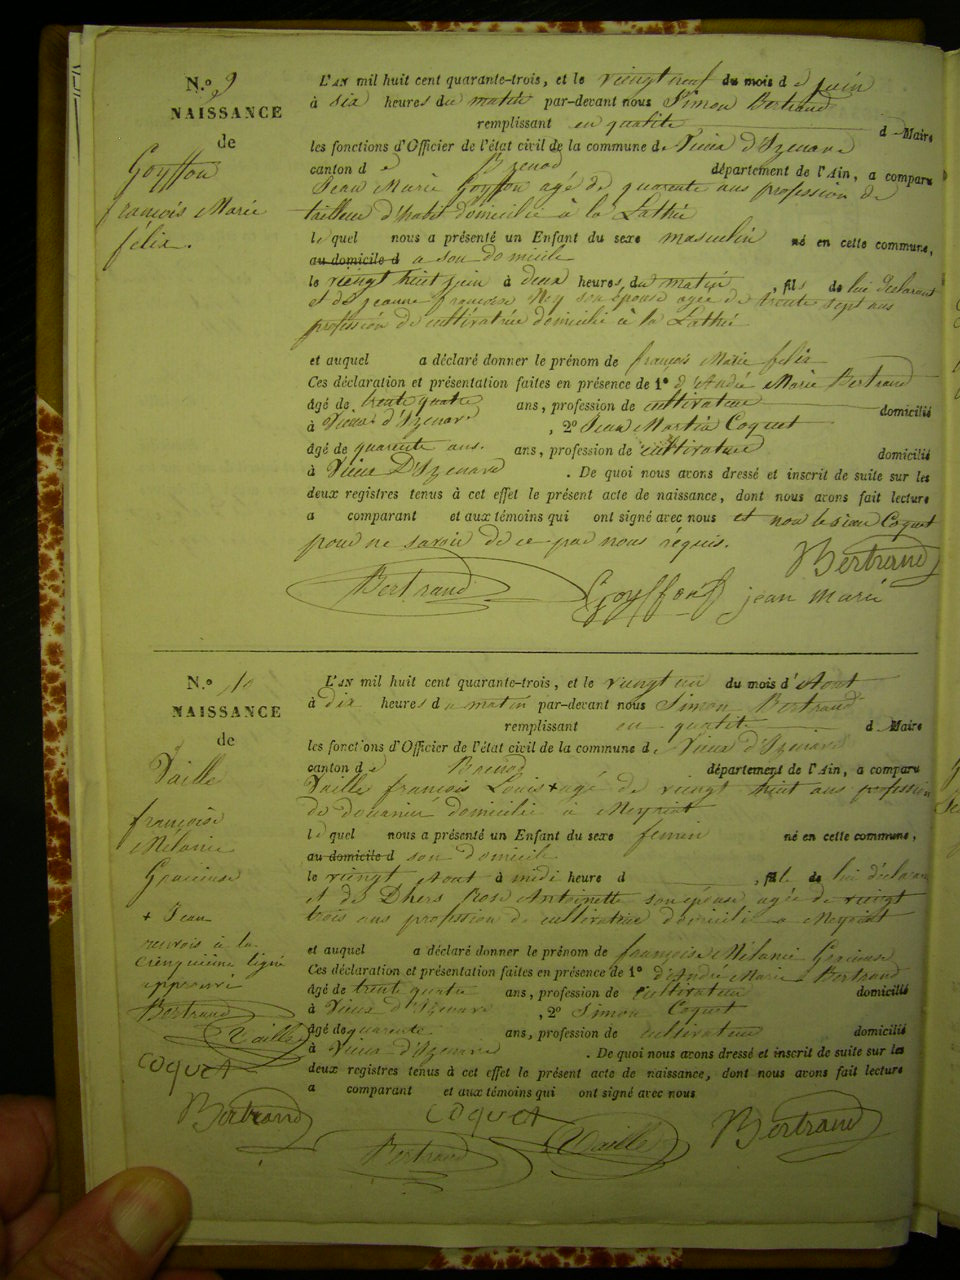 N.° 9
NAISSANCE
de
Goyffon
françois Marie
félix.
L'AN mil huit cent quarante-trois, et le vingt neuf du mois de juin
à six heures du matin par-devant nous Simon Bertrand
remplissant en qualité d Maire
les fonctions d'Officier de l'état civil de la commune de Vieux d'Izenave
canton de Brenod département de l'Ain, a comparu
Jean Marie Goyffon agé de quarente ans profession de
tailleur d'habit domicilié à la Lathe
le quel nous a présenté un Enfant du sexe masculin né en cette commune,
au domicile d a son domicile
le vingt huit juin à deux heures du matin, fils de lui déclarant
et de jeanne françoise Ney son épouse agée de trente sept ans
profession de cultivatrice domicilié à la Lathe
et auquel a déclaré donner le prénom de françois Marie félix
Ces déclaration et présentation faites en présence de 1° d'André Marie Bertrand
âgé de trente quatre ans, profession de cultivateur domicilié
à Vieux d'Izenave, 2° Jean Martin Coquet
âgé de quarente ans. ans, profession de cultivateur domicilié
à Vieux D'Izenave. De quoi nous avons dressé et inscrit de suite sur les
deux registres tenus à cet effet le présent acte de naissance, dont nous avons fait lecture
a comparant et aux témoins qui ont signé avec nous et non le sieur Coquet
pour ne savoir de ce par nous réquis.
Bertrand
Bertrand
Goyffon jean marie
N.° 10
NAISSANCE
de
Vaille
françoise
Mélanie
Gracieuse
+ Jean
renvois à la
cinquième ligne
approuvé
Bertrand
Vaille
Coquet
Bertrand
L'AN mil huit cent quarante-trois, et le vingt un du mois d'Aout
à dix heures du matin par-devant nous Simon Bertrand
remplissant en qualité d Maire
les fonctions d'Officier de l'état civil de la commune de Vieux d'Izenave
canton de Brenod département de l'Ain, a comparu
Vaille françois Louis + agé de vingt huit ans profession
de douanier domicilié à Meyriat
le quel nous a présenté un Enfant du sexe femini né en cette commune,
au domicile d son domicile
le vingt Aout à midi heure d , fil de lui déclarant
et de Dhers Rose Antoinette son épouse agée de vingt
trois ans profession de cultivatrice domicilié a Meyriat
et auquel a déclaré donner le prénom de françoise Mélanie Gracieuse
Ces déclaration et présentation faites en présence de 1° d'André Marie Bertrand
âgé de trente quatre ans, profession de cultivateur domicilié
à Vieux d'Izenave, 2° Simon Coquet
âgé de quarente ans, profession de cultivateur domicilié
à Vieux d'Izenave. De quoi nous avons dressé et inscrit de suite sur les
deux registres tenus à cet effet le présent acte de naissance, dont nous avons fait lecture
a comparant et aux témoins qui ont signé avec nous
Coquet
Bertrand
Vaille
Bertrand